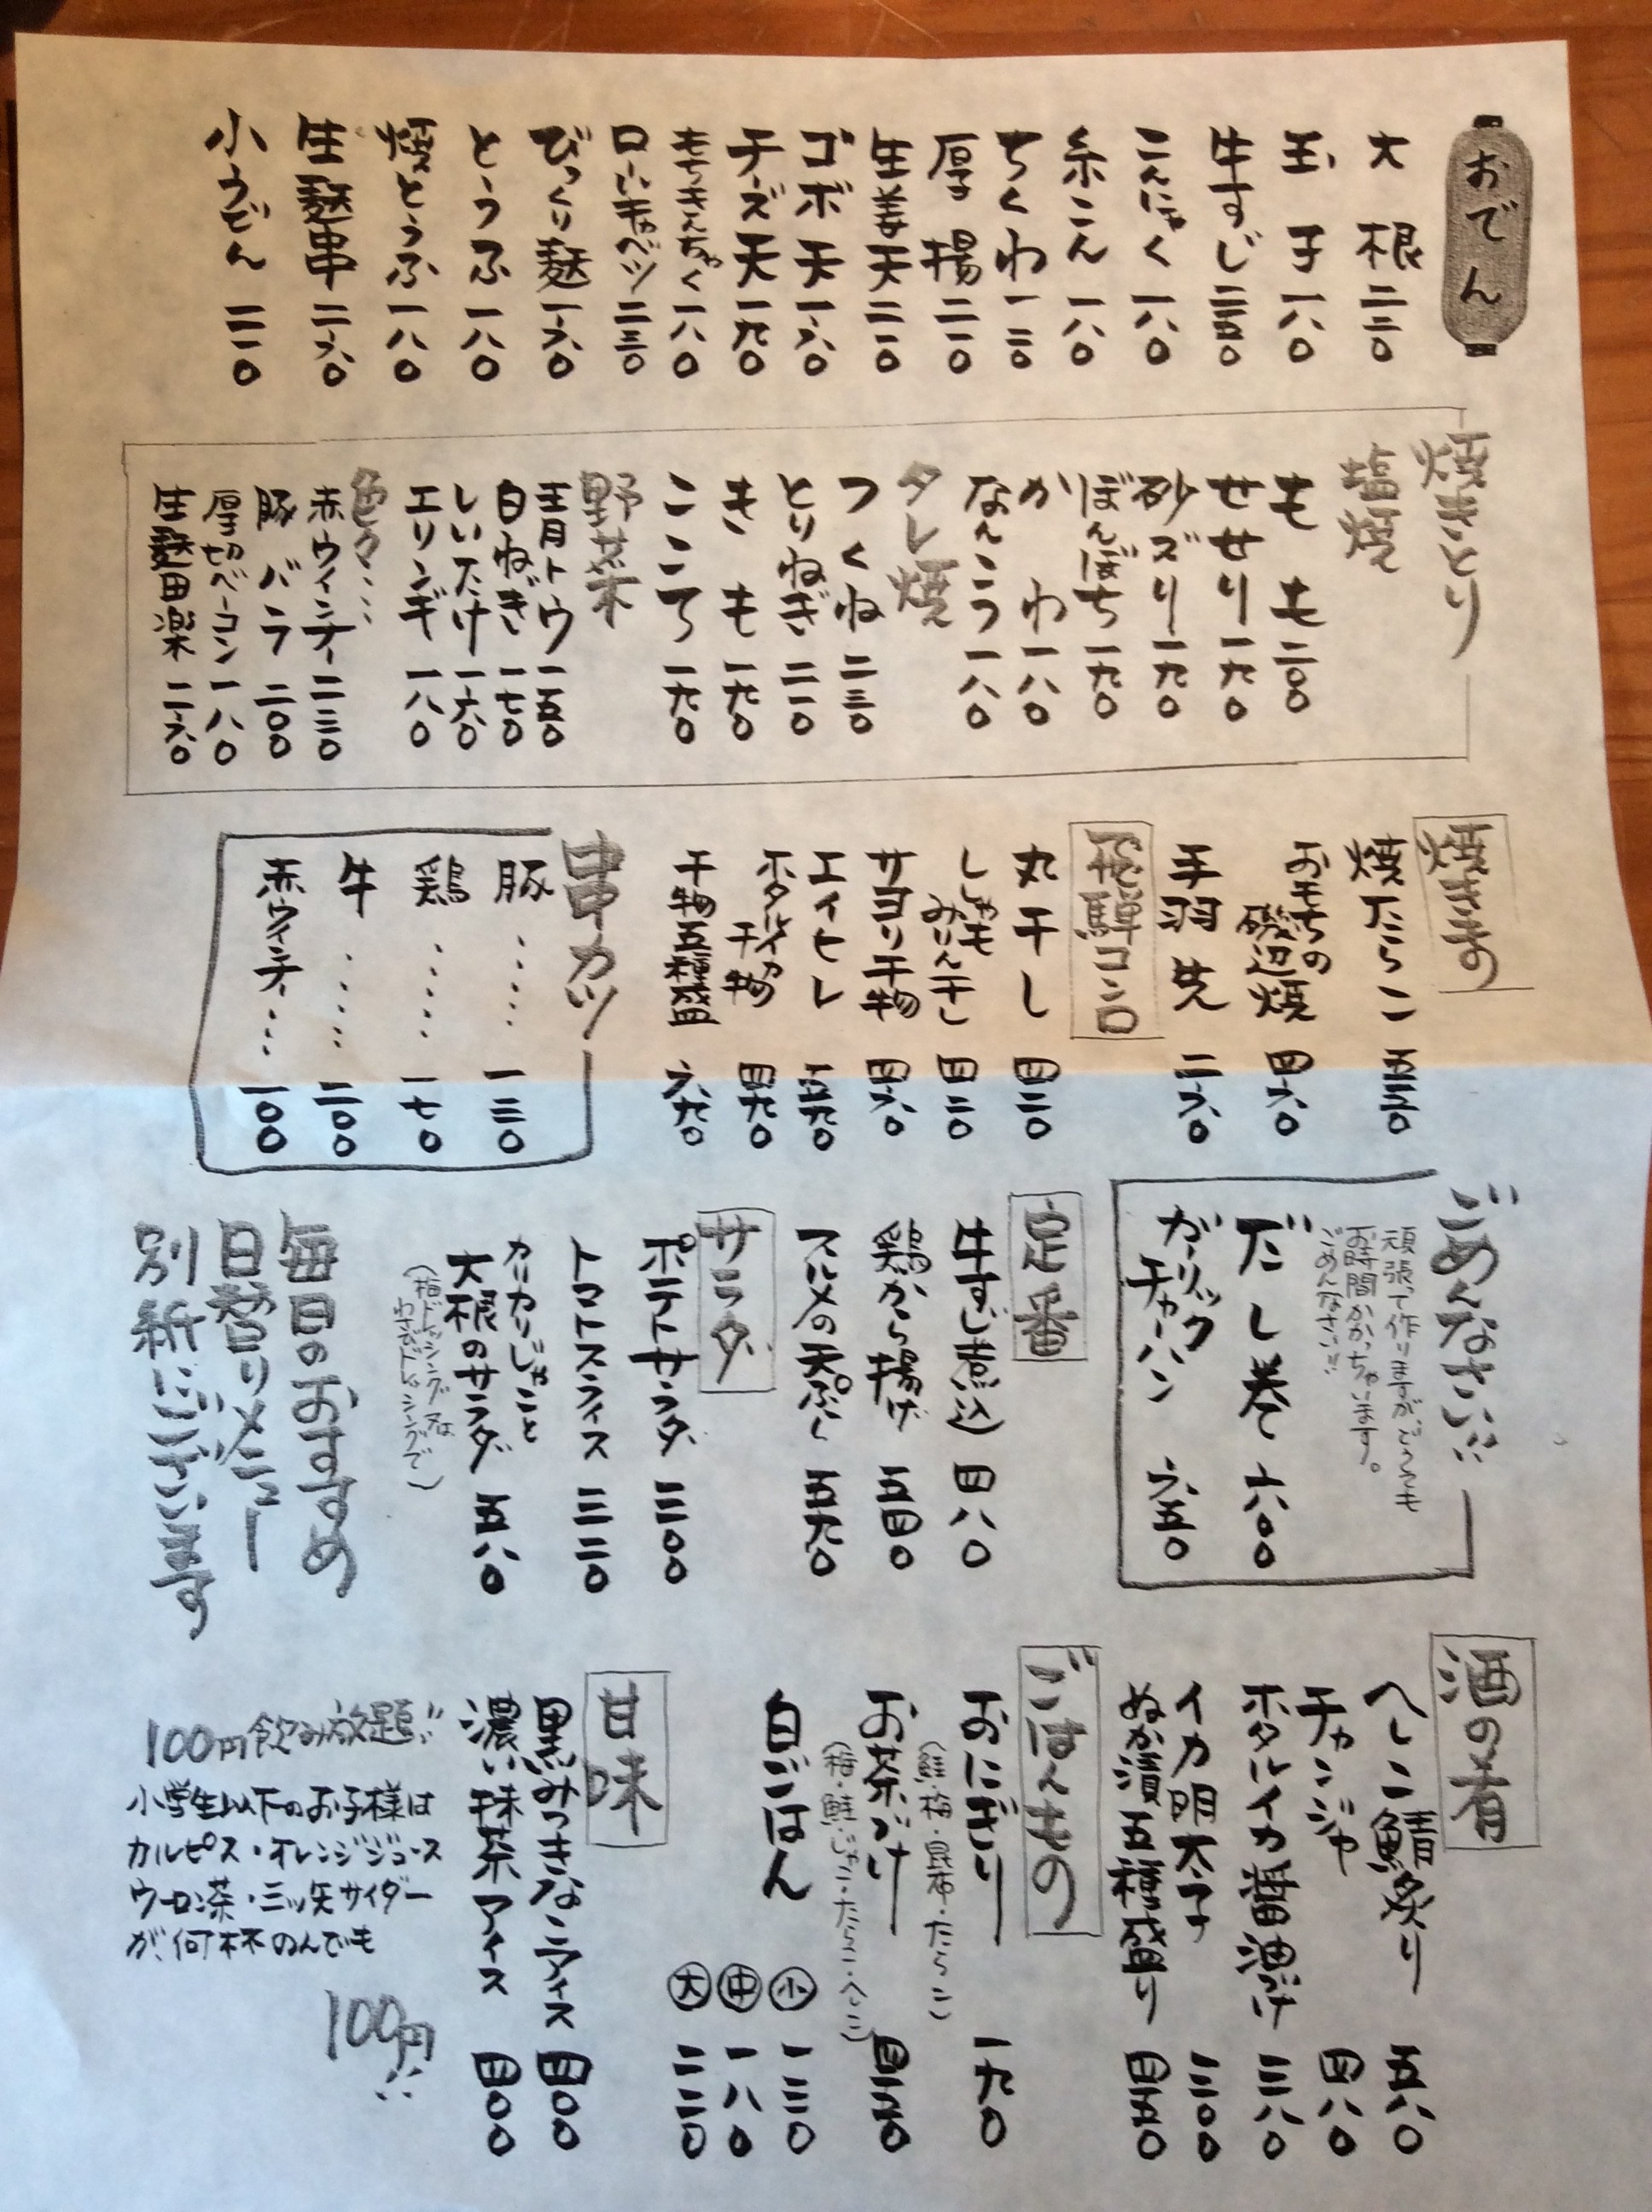 おでん
大根 二三〇
玉子 一八〇
牛すじ 二五〇
こんにゃく 一八〇
糸こん 一八〇
ちくわ 一三〇
厚揚 二一〇
生姜天 二一〇
ゴボ天 一六〇
チーズ天 一九〇
もちきんちゃく 一八〇
ロールキャベツ 二三〇
びっくり麩 一六〇
とうふ 一八〇
焼とうふ 一八〇
生麩串 二六〇
小うどん 二一〇
焼きとり
塩焼
もも 二〇〇
せせり 一九〇
砂ズリ 一九〇
ぼんぼち 一九〇
かわ 一八〇
なんこつ 一八〇
タレ焼
つくね 二三〇
とりねぎ 二一〇
きも 一九〇
こころ 一九〇
野菜
青トウ 一五〇
白ねぎ 一七〇
しいたけ 一六〇
エリンギ 一八〇
色々…
赤ウインナー 二三〇
豚バラ 二〇〇
厚切ベーコン 一八〇
生麩田楽 二六〇
焼きもの
焼たらこ
おもちの
磯辺焼 四六〇
手羽先 二六〇
飛騨コンロ
丸干し 四二〇
ししゃも
みりん干し 四二〇
サヨリ干物 四六〇
エイヒレ 五九〇
ホタルイカ
干物 四九〇
干物五種盛 六九〇
串カツ
豚…… 一三〇
鶏…… 一七〇
牛…… 二〇〇
赤ウインナー… 一〇〇
ごめんなさい!!
頑張って作りますが、どうしても
お時間かかっちゃいます。
ごめんなさい!!
だし巻 六〇〇
ガーリック
チャーハン 六五〇
定番
牛すじ煮込 四八〇
鶏から揚げ 五四〇
スルメの天ぷら 五九〇
サラダ
ポテトサラダ 三〇〇
トマトスライス 三二〇
カリカリじゃこと
大根のサラダ 五八〇
(梅ドレッシング又は
わさびドレッシングで)
毎日のおすすめ
日替りメニュー
別紙にございます
酒の肴
へしこ鯖炙り 五八〇
チャンジャ 四八〇
ホタルイカ醤油づけ 三八〇
イカ明太子 三〇〇
ぬか漬五種盛り 四五〇
ごはんもの
おにぎり 一九〇
(鮭・梅・昆布・たらこ)
お茶づけ
(梅・鮭・じゃこ・たらこ・へしこ)
白ごはん
小 一三〇
中 一八〇
大 二二〇
甘味
黒みつきなこアイス 四〇〇
濃い抹茶アイス 四〇〇
100円飲み放題!!
小学生以下のお子様は
カルピス・オレンジジュース
ウーロン茶・三ッ矢サイダー
が、何杯のんでも
100円!!